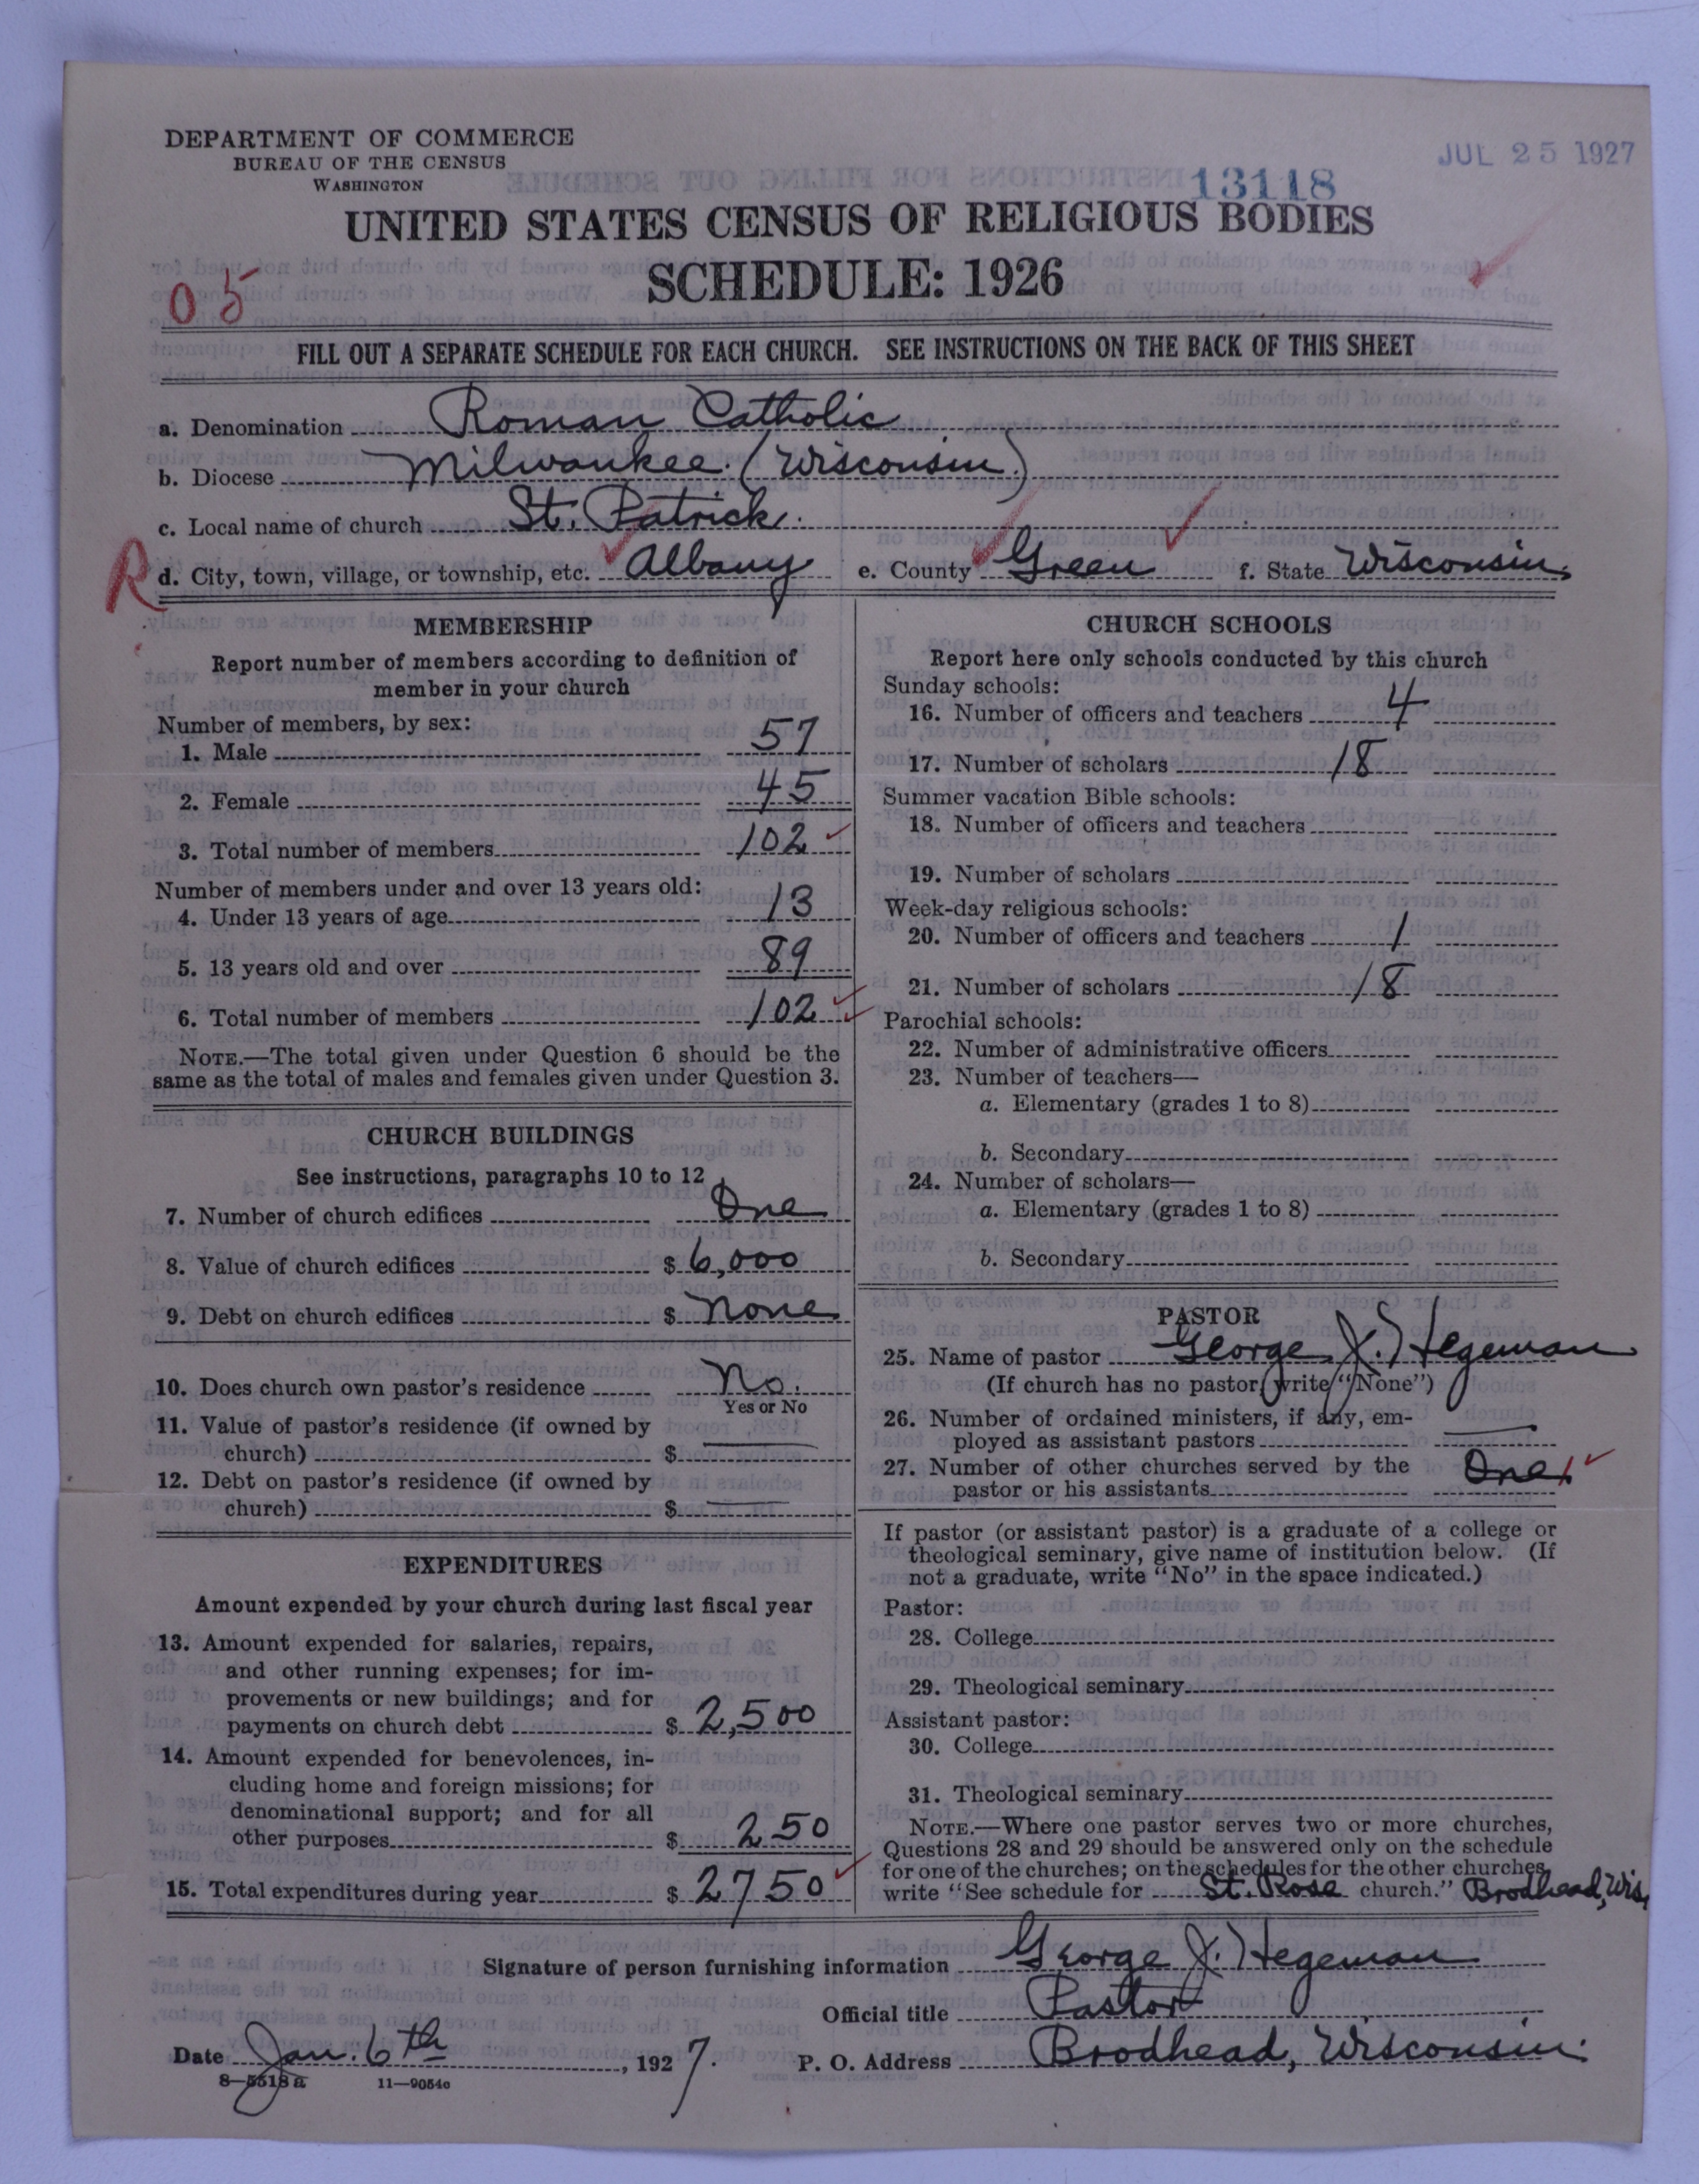 DEPARTMENT OF COMMERCE
BUREAU OF THE CENSUS
WASHINGTON
JUL 25 1927
13118
UNITED STATES CENSUS OF RELIGIOUS BODIES
SCHEDULE: 1926
05
FILL OUT A SEPARATE SCHEDULE FOR EACH CHURCH. SEE INSTRUCTIONS ON THE BACK OF THIS SHEET
a. Denomination Roman Catholic
b. Diocese Milwaukee. (Wisconsin.)
c. Local name of church St. Patrick.
R d. City, town, village, or township, etc. Albany e. County Green f. State Wisconsin.
MEMBERSHIP
Report number of members according to definition of
member in your church
Number of members, by sex:
1. Male 57
2. Female 45
3. Total number of members 102
Number of members under and over 13 years old:
4. Under 13 years of age 13
5. 13 years old and over 89
6. Total number of members 102
NOTE.—The total given under Question 6 should be the
same as the total of males and females given under Question 3.
CHURCH BUILDINGS
See instructions, paragraphs 10 to 12
7. Number of church edifices One
8. Value of church edifices $ 6,000
9. Debt on church edifices $ none
10. Does church own pastor's residence No.
Yes or No
11. Value of pastor's residence (if owned by
church) $ —
12. Debt on pastor's residence (if owned by
church) $ —
EXPENDITURES
Amount expended by your church during last fiscal year
13. Amount expended for salaries, repairs,
and other running expenses; for im-
provements or new buildings; and for
payments on church debt $ 2,500
14. Amount expended for benevolences, in-
cluding home and foreign missions; for
denominational support; and for all
other purposes $ 250
15. Total expenditures during year $ 2750
CHURCH SCHOOLS
Report here only schools conducted by this church
Sunday schools:
16. Number of officers and teachers 4
17. Number of scholars 18
Summer vacation Bible schools:
18. Number of officers and teachers
19. Number of scholars
Week-day religious schools:
20. Number of officers and teachers 1
21. Number of scholars 18
Parochial schools:
22. Number of administrative officers
23. Number of teachers—
a. Elementary (grades 1 to 8)
b. Secondary
24. Number of scholars—
a. Elementary (grades 1 to 8)
b. Secondary
PASTOR
25. Name of pastor George J. Hegeman
(If church has no pastor, write "None")
26. Number of ordained ministers, if any, em-
ployed as assistant pastors —
27. Number of other churches served by the
pastor or his assistants One 1
If pastor (or assistant pastor) is a graduate of a college or
theological seminary, give name of institution below. (If
not a graduate, write "No" in the space indicated.)
Pastor:
28. College
29. Theological seminary
Assistant pastor:
30. College
31. Theological seminary
NOTE.—Where one pastor serves two or more churches,
Questions 28 and 29 should be answered only on the schedule
for one of the churches; on the schedules for the other churches
write "See schedule for St. Rose church." Brodhead, Wis.
Signature of person furnishing information George J. Hegeman
Official title Pastor
Date Jan. 6th, 1927. P. O. Address Brodhead, Wisconsin.
8—5518 a 11—9054c